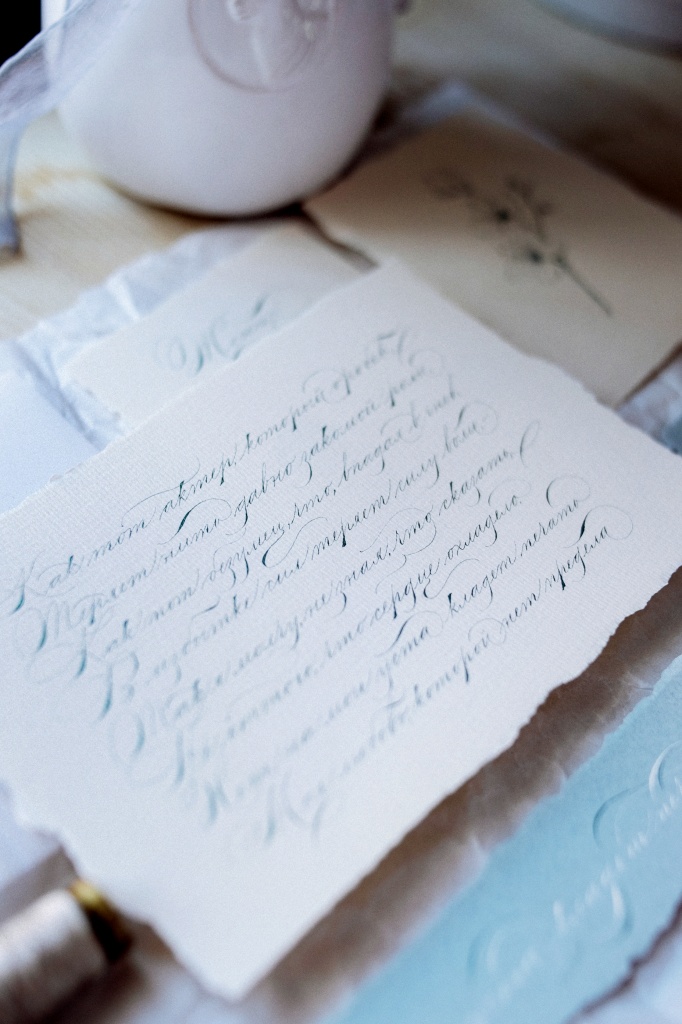 Как тот актер, который, оробев,
Теряет нить давно знакомой роли,
Как тот безумец, что, впадая в гнев,
В избытке сил теряет силу воли,
Так я молчу, не зная, что сказать,
Не оттого, что сердце охладело.
Нет, на мои уста кладет печать
Моя любовь, которой нет предела